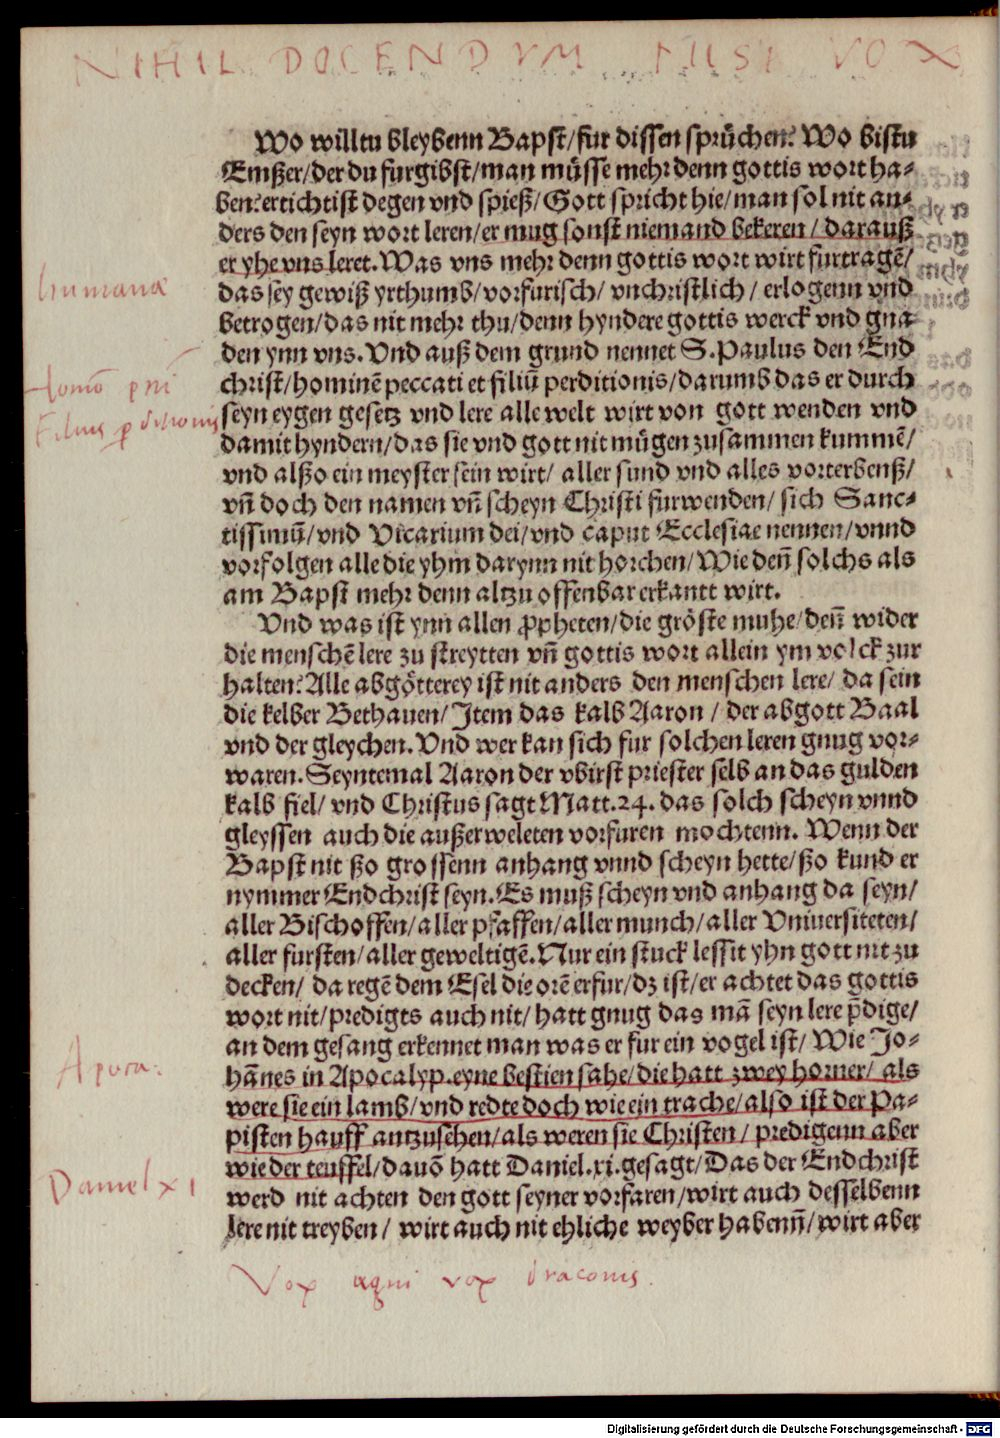 NIHIL DOCENDVM NISI VOX
Wo willtu bleybenn Bapst/fur dissen sprüchen? Wo bistu
Emßer/der du furgibst/man müsse mehr denn gottis wort ha-
ben? ertichtist degen vnd spieß/Gott spricht hie/man sol nit an-
ders den seyn wort leren/er mug sonst niemand bekeren/ darauß
er yhe vns leret. Was vns mehr denn gottis wort wirt furtragē/
humanae
das sey gewiß yrthumb/vorfurisch/ vnchristlich/ erlogenn vnd
betrogen/das nit mehr thu/denn hyndere gottis werck vnd gna-
den ynn vns. Vnd auß dem grund nennet S. Paulus den End
Homo pni
christ/hominē peccati et filiū perditionis/darumb das er durch
Filius perditionis
seyn eygen gesetz vnd lere alle welt wirt von gott wenden vnd
damit hyndern/das sie vnd gott nit mügen zusammen kummē/
vnd alßo ein meyster sein wirt/ aller sund vnd alles vorterbenß/
vn̄ doch den namen vn̄ scheyn Christi furwenden/ sich Sanc-
tissimū/vnd Vicarium dei/vnd caput Ecclesiae nennen/vnnd
vorfolgen alle die yhm darynn nit horchen/Wie den̄ solchs als
am Bapst mehr denn altzu offenbar erkantt wirt.
Vnd was ist ynn allen ꝓpheten/die gröste muhe/den̄ wider
die menschē lere zu streytten vn̄ gottis wort allein ym volck zur
halten? Alle abgötterey ist nit anders den menschen lere/ da sein
die kelber Bethauen/Item das kalb Aaron/ der abgott Baal
vnd der gleychen. Vnd wer kan sich fur solchen leren gnug vor-
waren. Seyntemal Aaron der vbirst priester selb an das gulden
kalb fiel/ vnd Christus sagt Matt. 24. das solch scheyn vnnd
gleyssen auch die außerweleten vorfuren mochtenn. Wenn der
Bapst nit ßo grossenn anhang vnnd scheyn hette/ßo kund er
nymmer Endchrist seyn. Es muß scheyn vnd anhang da seyn/
aller Bischoffen/aller pfaffen/aller munch/aller Vniuersiteten/
aller fursten/aller geweltigē. Nur ein stuck lessit yhn gott nit zu
decken/ da regē dem Esel die orē erfur/dz ist/er achtet das gottis
wort nit/predigts auch nit/ hatt gnug das mā seyn lere p̄dige/
an dem gesang erkennet man was er fur ein vogel ist/ Wie Jo-
Apoca:
hānes in Apocalyp. eyne bestien sahe/die hatt zwey horner/ als
were sie ein lamb/vnd redte doch wie ein trache/also ist der Pa-
pisten hauff antzusehen/als weren sie Christen/ predigenn aber
wie der teuffel/dauō hatt Daniel. xi. gesagt/Das der Endchrist
Daniel XI
werd nit achten den gott seyner vorfaren/wirt auch desselbenn
lere nit treyben/ wirt auch nit ehliche weyber habenn̄/wirt aber
Vox agni vox draconis.
Digitalisierung gefördert durch die Deutsche Forschungsgemeinschaft - DFG